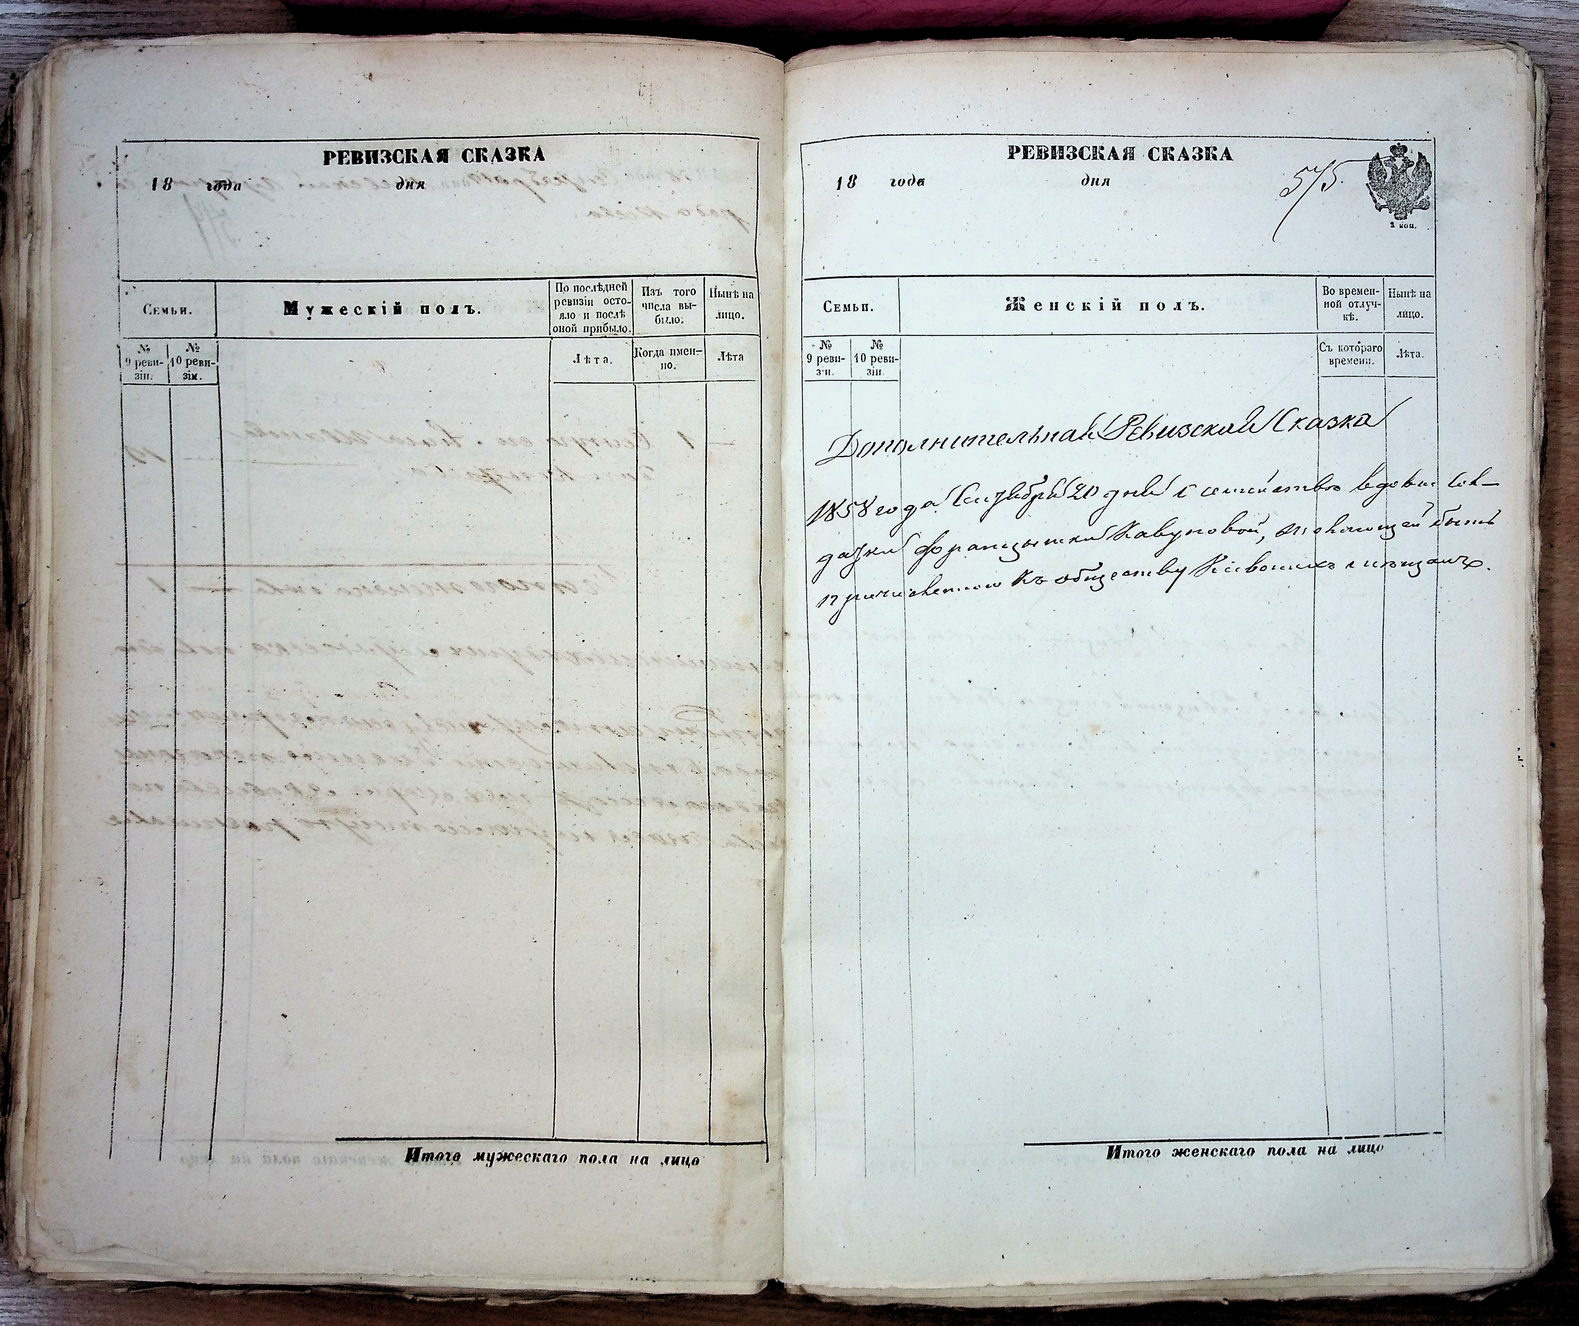 РЕВИЗСКАЯ СКАЗКА
18 года дня
Семьи.
Мужескій полъ.
По послѣдней ревизіи состояло и послѣ оной прибыло.
Изъ того числа выбыло.
Нынѣ на лицо.
№ 9 ревизіи.
№ 10 ревизіи.
Лѣта.
Когда именно.
Лѣта
Итого мужескаго пола на лицо
РЕВИЗСКАЯ СКАЗКА
18 года дня
575.
2 коп.
Семьи.
Женскій полъ.
Во временной отлучкѣ.
Нынѣ на лицо.
№ 9 ревизіи.
№ 10 ревизіи.
Съ котораго времени.
Лѣта.
Дополнительная Ревизская Сказка
1858 года Сентября 20 дня о семействѣ вдовы Сол-
датки Францишки Кавуновой, желающей быть
причисленною къ обществу Кіевскихъ мѣщанъ.
Итого женскаго пола на лицо